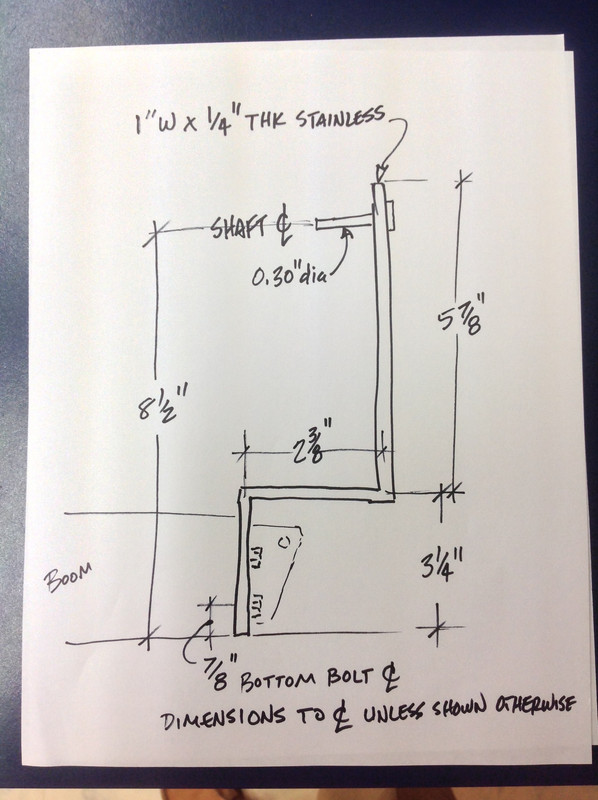 1"W X 1/4" THK STAINLESS
SHAFT ℄
0.30" dia
5 7/8"
8 1/2"
2 3/8"
BOOM
3 1/4"
7/8" BOTTOM BOLT ℄
DIMENSIONS TO ℄ UNLESS SHOWN OTHERWISE